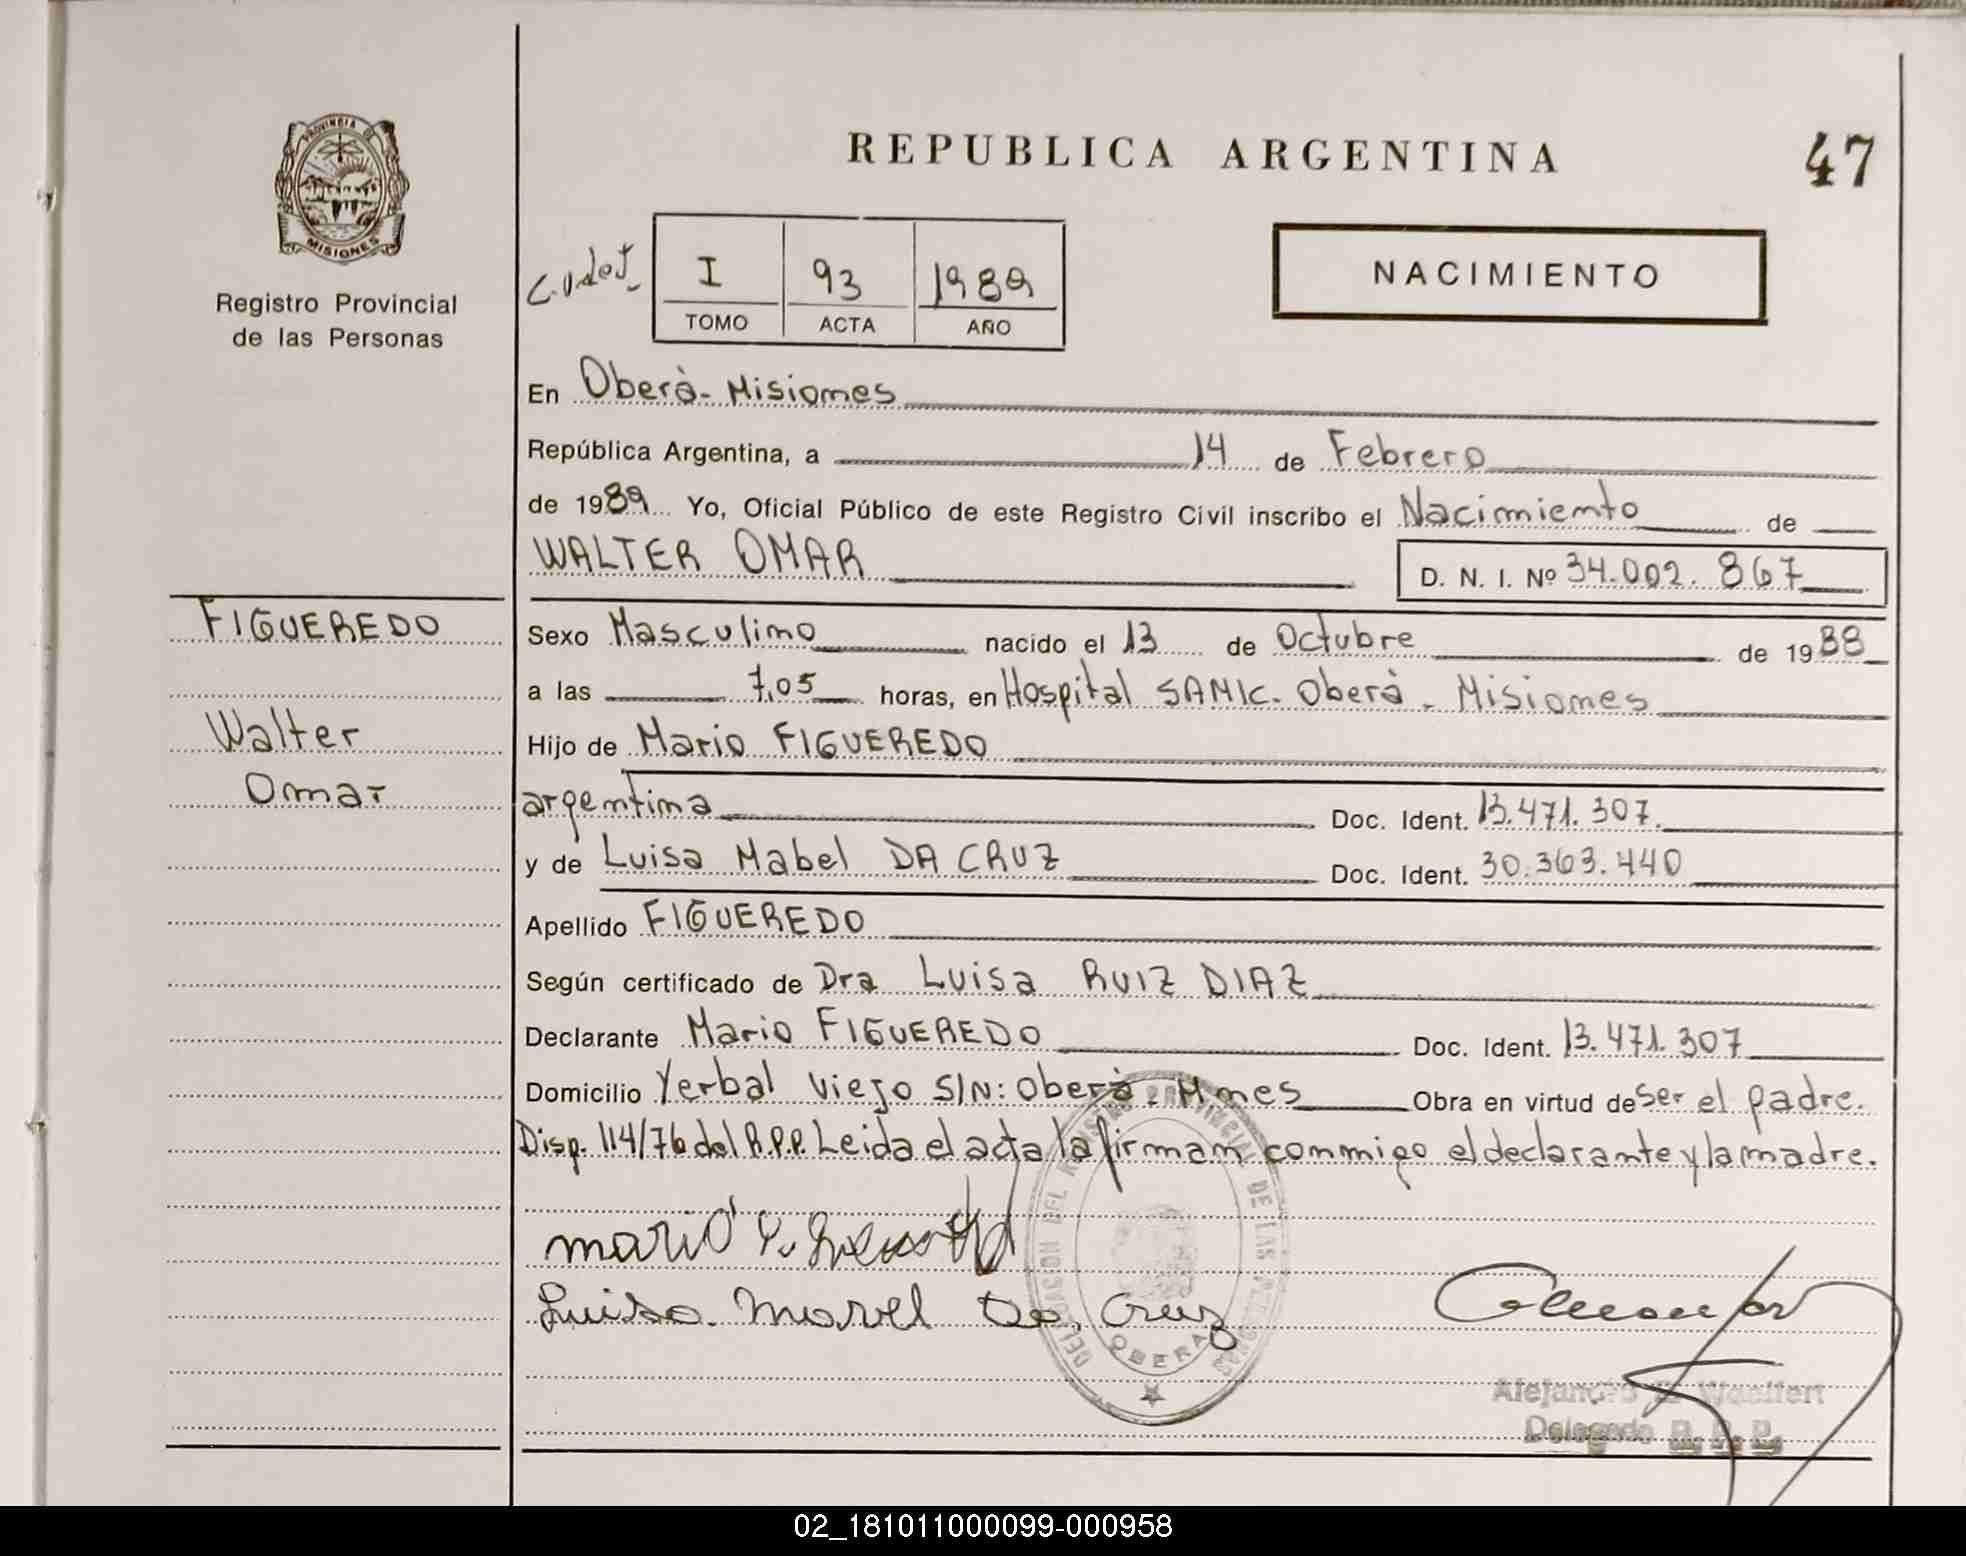 PROVINCIA DE
MISIONES
Registro Provincial
de las Personas
REPUBLICA ARGENTINA
47
I 93 1989
TOMO ACTA AÑO
NACIMIENTO
En Oberà - Misiones
República Argentina, a 14 de Febrero
de 1989 Yo, Oficial Público de este Registro Civil inscribo el Nacimiento de
WALTER OMAR
D. N. I. Nº 34.002.867
FIGUEREDO
Walter
Omar
Sexo Masculino nacido el 13 de Octubre de 1988
a las 7,05 horas, en Hospital SAMIC. Oberà - Misiones
Hijo de Mario FIGUEREDO
argentina Doc. Ident. 13.471.307.
y de Luisa Mabel DA CRUZ Doc. Ident. 30.363.440
Apellido FIGUEREDO
Según certificado de Dra Luisa RUIZ DIAZ
Declarante Mario FIGUEREDO Doc. Ident. 13.471.307
Domicilio Yerbal Viejo S/N: Oberà. Mnes Obra en virtud de ser el padre.
Disp. 114/76 del R.P.P. Leida el acta la firman conmigo el declarante y la madre.
Luisa Mavel Da Cruz
OBERA
Delegado R. P. P.
02_181011000099-000958